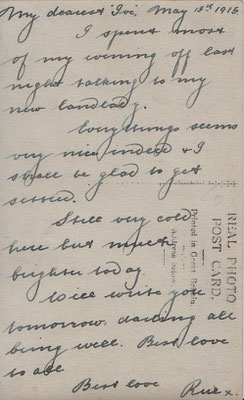 My dearest Ivi, May 18th 1915
I spent most
of my evening off last
night talking to my
new landlady.
Everything seems
very nice indeed & I
shall be glad to get
settled.
Still very cold
here but much
brighter today.
Will write you
tomorrow darling all
being well. Best love
to all
Best love
x.
REAL PHOTO
POST CARD.
Printed in Great Britain.